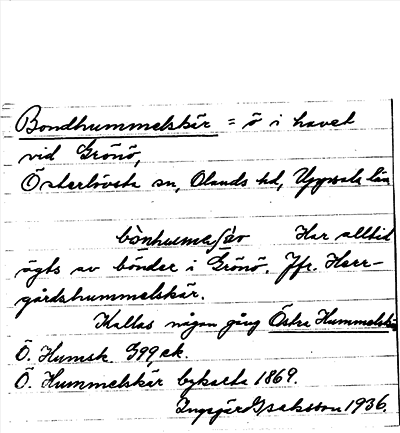 Bondhummelskär = ö i havet
vid Grönö,
Österlövsta sn, Olands hd, Uppsala län
Har alltid
ägts av bönder i Grönö. Jfr. Herr-
gårdshummelskär.
Kallas någon gång Östra Hummelskär
Ö. Humsk. G99, ek.
Ö. Hummelskär bykarta 1869.
Ingegärd Isaksson 1936.